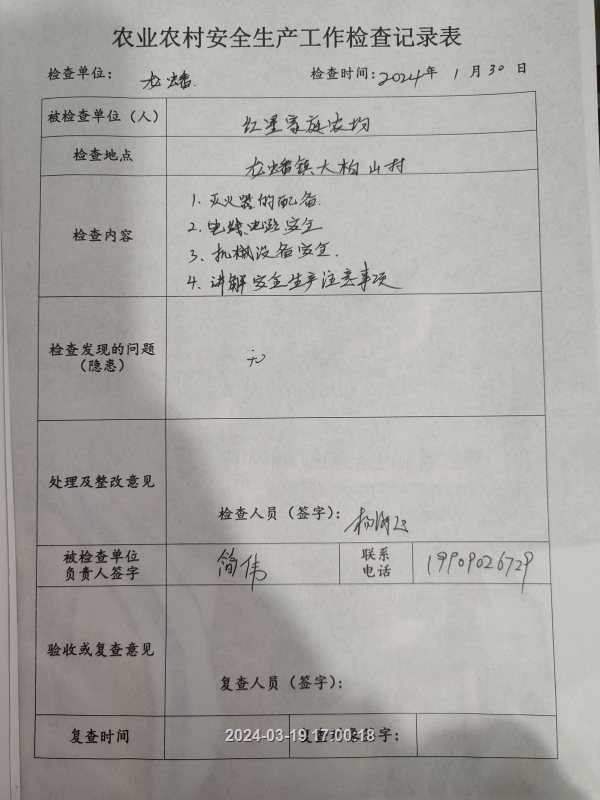 农业农村安全生产工作检查记录表
检查单位: 龙蟠. 检查时间: 2024年 1 月 30 日
被检查单位(人) 红星家庭农场
检查地点 龙蟠镇大柏山村
检查内容
1. 灭火器的配备.
2. 电线电路安全
3、机械设备安全.
4、讲解安全生产注意事项
检查发现的问题
(隐患)
无
处理及整改意见
检查人员(签字):
被检查单位
负责人签字
简伟
联系
电话
19909026729
验收或复查意见
复查人员(签字):
复查时间
字:
2024-03-19 17:00:18